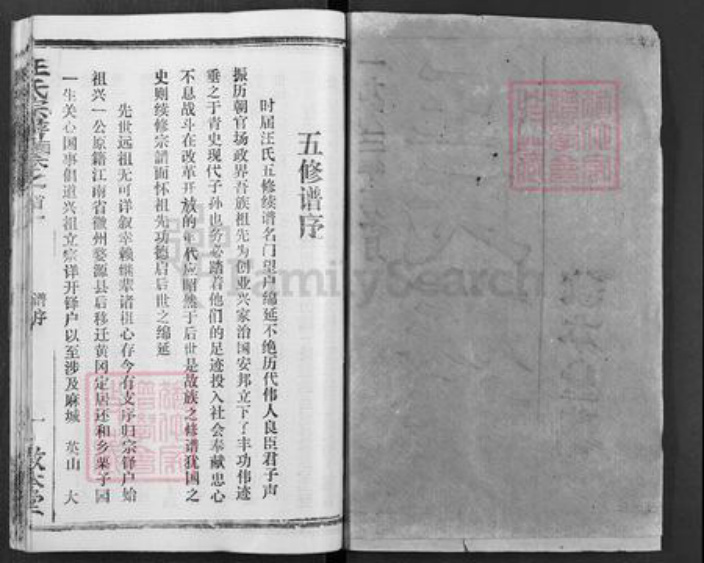 五修谱序
时届汪氏五修续谱名门望户绵延不绝历代伟人良臣君子声
振历朝官场政界吾族祖先为创业兴家治国安邦立下了丰功伟迹
垂之于青史现代子孙也务必踏着他们的足迹投入社会奉献忠心
不息战斗在改革开放的年代应昭然于后世是故族之修谱犹国之
史则续修宗谱面怀祖先功德启后世之绵延
先世远祖无可详叙幸赖继辈诸祖心存今有支序归宗铎户始
祖兴一公原籍江南省徽州婺源县后移迁黄冈定居还和乡栗子园
一生关心国事倡道兴祖立宗详开铎户以至涉及麻城 英山 大
汪氏宗谱
卷之首一
谱序
一
敦本堂
FamilySearch